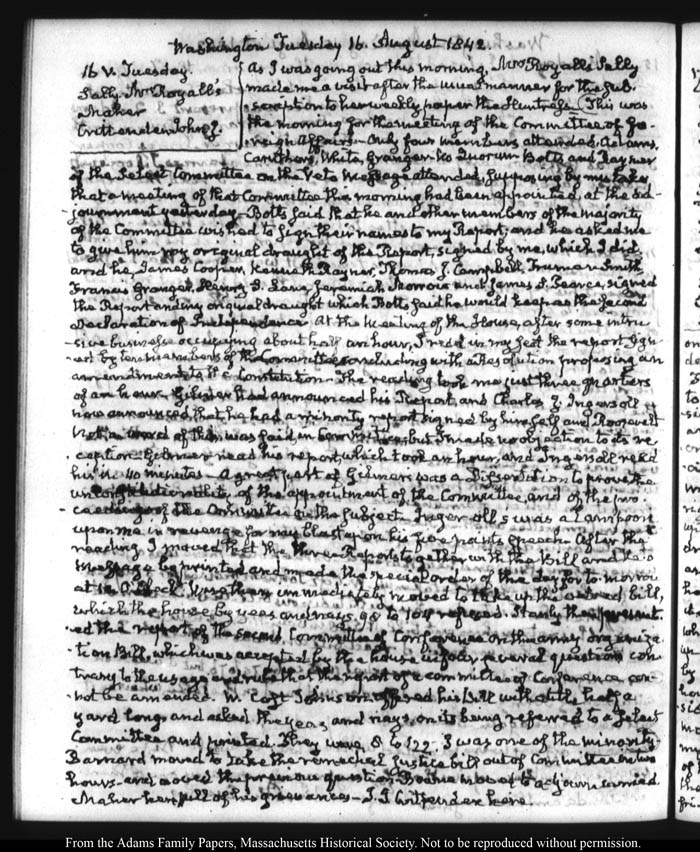 Washington Tuesday 16. August 1842.
16 V. Tuesday.
Sally. Mrs Royall's
Maher
Crittenden John J.
As I was going out this morning, Mrs Royall's Sally
made me a visit after the usual manner for the sub-
scription to her weekly paper the Huntress. This was
the morning for the meeting of the Committee of Fo-
reign Affairs. Only four members attended, Adams,
Caruthers, White, Granger. No Quorum. Botts and Rayner
of the Select Committee on the Veto Message attended, supposing by mistake
that a meeting of that Committee this morning had been appointed, at the ad-
journment yesterday. Botts said that he and other members of the majority
of the Committee wished to sign their names to my Report, and he asked me
to give him my original draught of the Report, signed by me, which I did,
and he, James Cooper, Kenneth Rayner, Thomas J. Campbell, Truman Smith
Francis Granger, Henry S. Lane, Jeremiah Morrow and James A. Pearce, signed
the Report and my original draught which Botts said he would keep as the second
Declaration of Independence. At the meeting of the House, after some intru-
sive business occupying about half an hour, I read in my seat the report sign-
ed by ten members of the Committee concluding with a Resolution proposing an
amendment to the Constitution. The reading took me just three quarters
of an hour. Gilmer had announced his Report, and Charles J. Ingersoll
now announced that he had a minority report signed by himself and Roosevelt
Not a word of this was said in Committee, but I made no objection to its re-
ception. Gilmer read his report, which took an hour, and Ingersoll read
his in 40 minutes. A great part of Gilmer's was a Dissertation to prove the
unconstitutionality of the appointment of the Committee, and of the pro-
ceedings of the Committee on the subject. Ingersoll's was a lampoon
upon me in revenge for my blast upon his five points speech. After the
reading, I moved that the three Reports together with the Bill and Veto
Message be printed and made the special order of the day for to-morrow
at 10 O'Clock. immediately moved to take up the bill,
which the house, by yeas and nays, 98 to 104 refused. Stanly then present-
ed the report of the second Committee of Conference on the army organiza-
tion Bill, which was accepted by the house in four several questions con-
trary to the usage and rule that the report of a committee of Conference can-
not be amended. W. Cost Johnson offered his bill with a title half a
yard long, and asked the yeas and nays, on its being referred to a Select
Committee and printed. They were, 8 to 122. I was one of the minority
Barnard moved to take the remedial Justice bill out of Committee in two
hours and moved the previous question. moved to adjourn carried
Maher here, full of his grievances. J. J. Crittenden here.
From the Adams Family Papers, Massachusetts Historical Society. Not to be reproduced without permission.